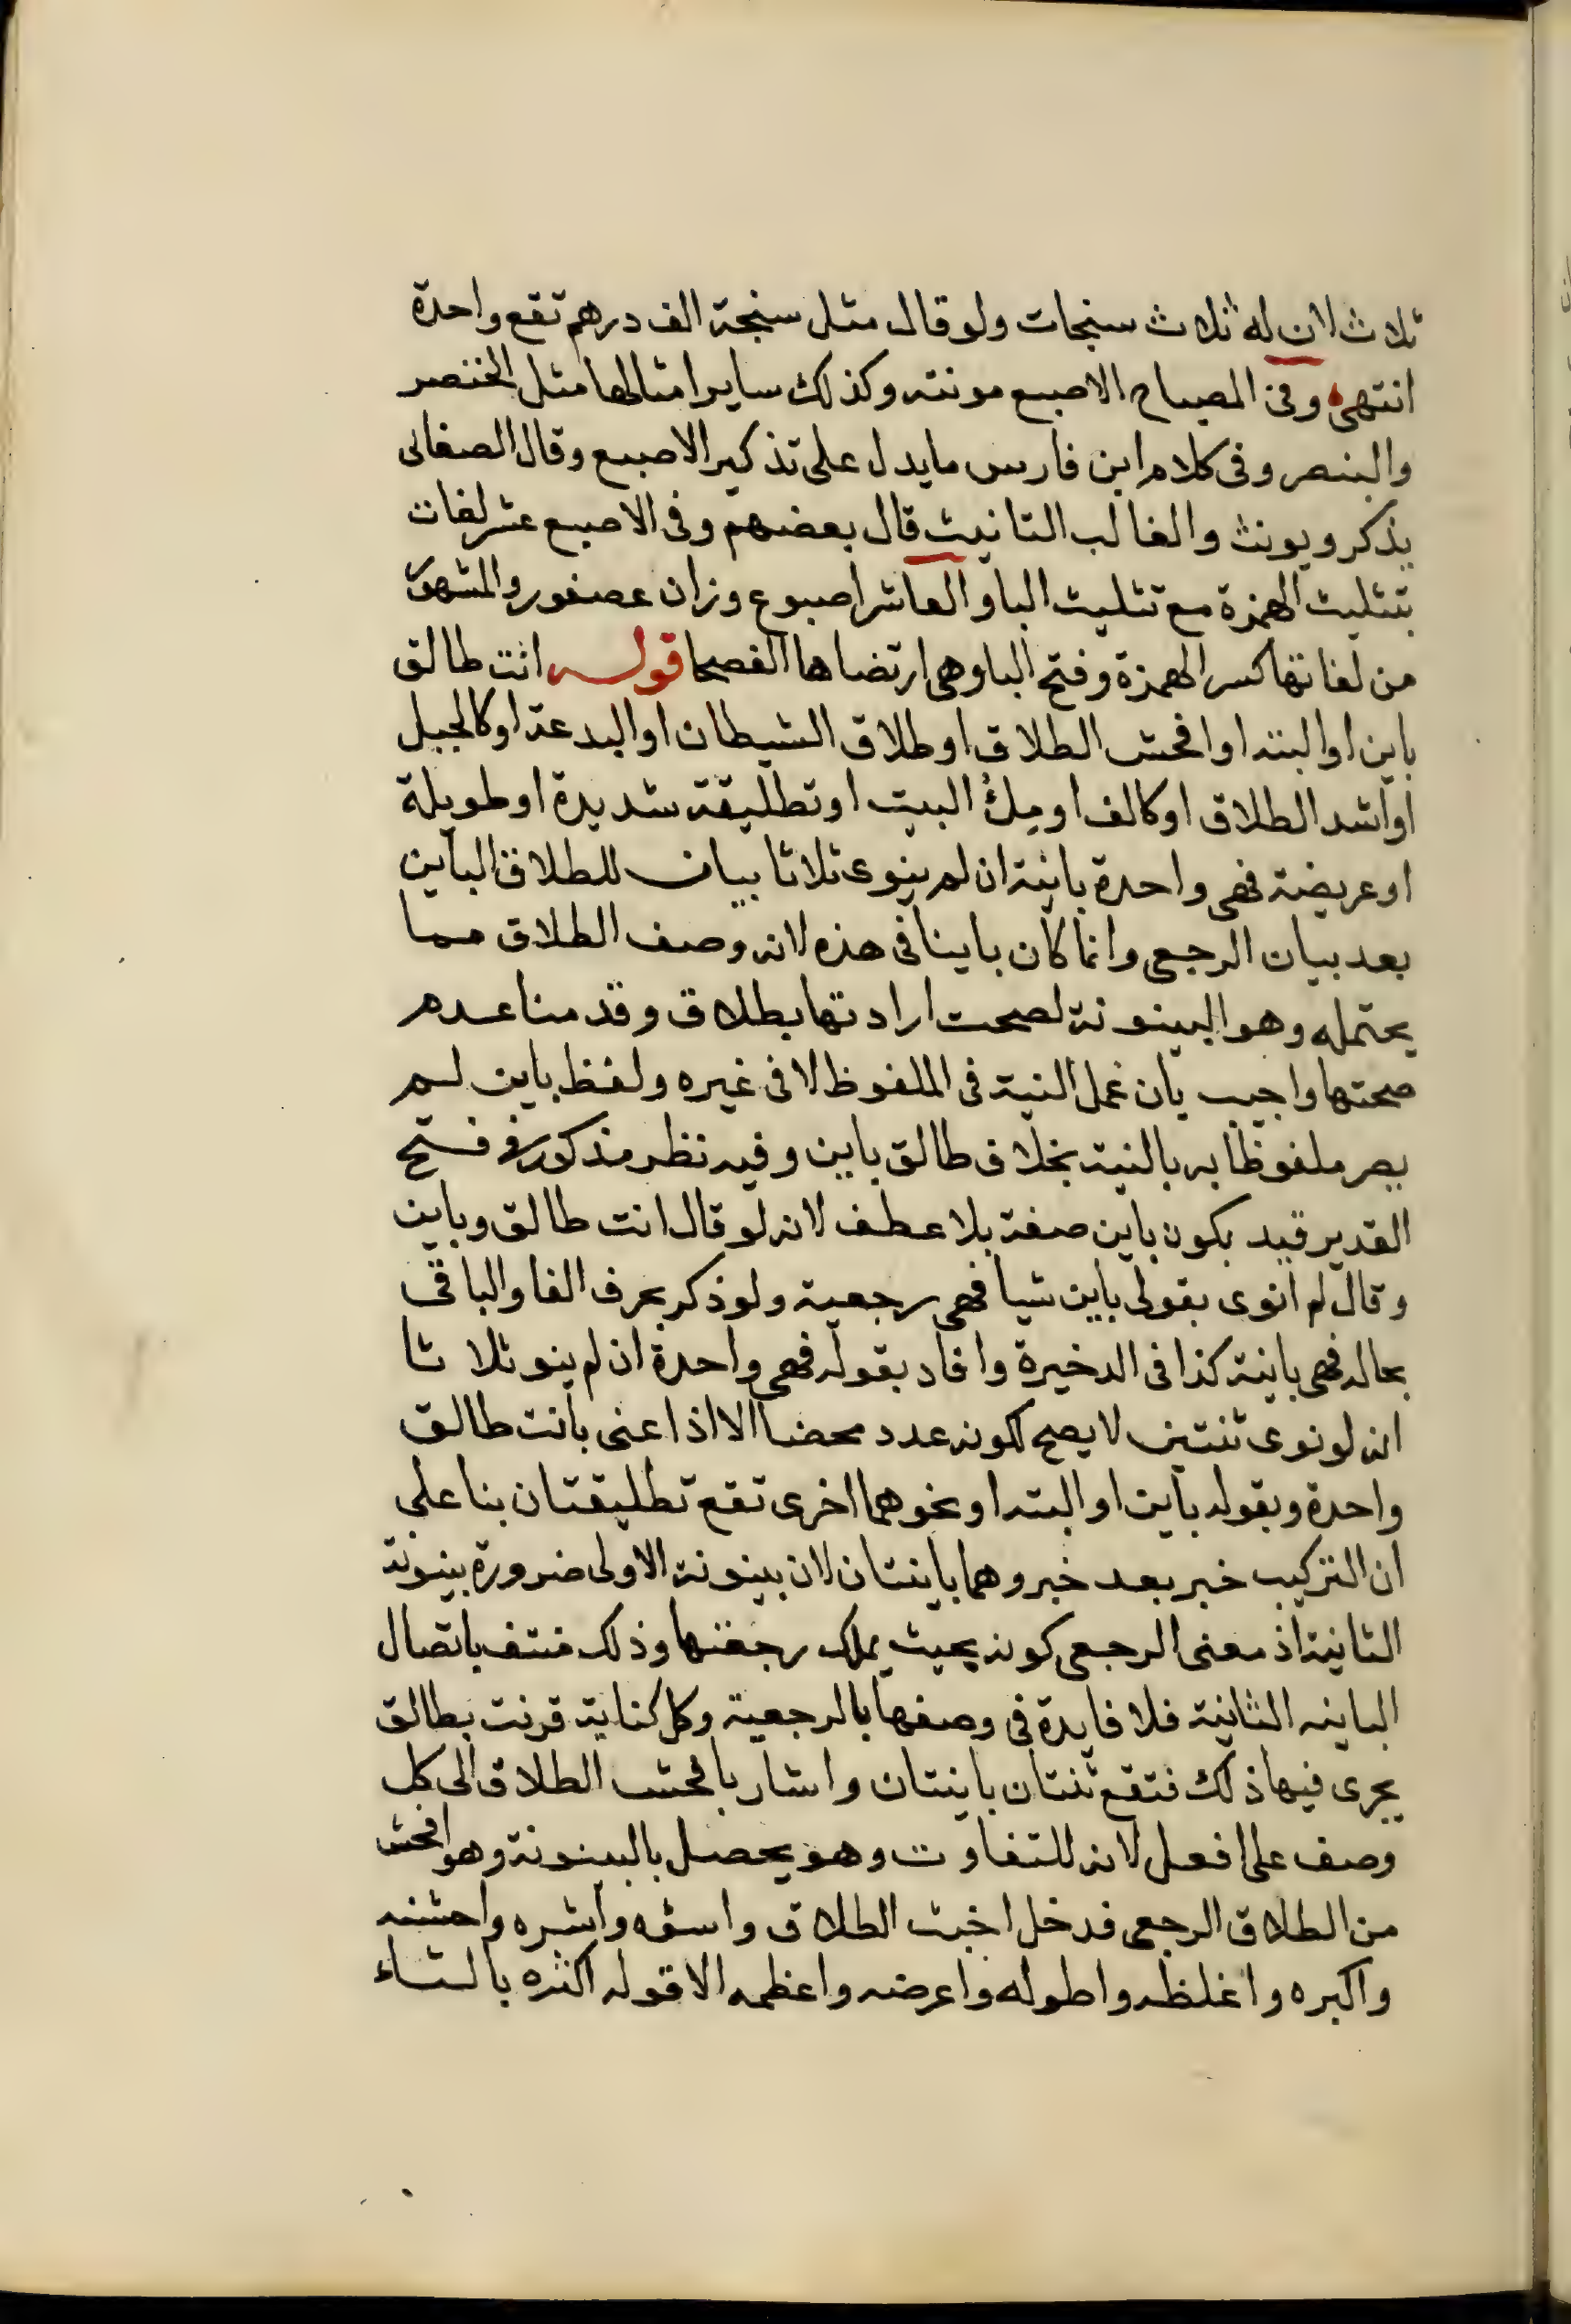 ثلاث لان له ثلاث سنجات ولو قال مثل سنجة الف درهم تقع واحدة
انتهى وفى المصباح الاصبع مونثه وكذلك ساير امثالها مثل الخنصر
والبنصر وفى كلام ابن فارس ما يدل على تذكير الاصبع وقال الصغانى
يذكر ويونث والغالب التانيث قال بعضهم وفى الاصبع عشر لغات
بتثليث الهمزة مع تثليث البا والعاشر اصبوع وزان عصفور والمشهور
من لغاتها كسر الهمزة وفتح البا وهى ارتضاها الفصحا قوله انت طالق
باين او البته او افحش الطلاق او طلاق الشيطان او البدعة او كالجبل
او اشد الطلاق او كالف او ملء البيت او تطليقة شديدة او طويلة
او عريضة فهى واحدة باينة ان لم ينوى ثلاثا بيان للطلاق الباين
بعد بيان الرجعى وانما كان باينا فى هذه لانه وصف الطلاق مما
يحتمله وهو البينونة لصحت ارادتها بطلاق وقدمنا عدم
صحتها واجيب بان عمل النية فى الملفوظ لا فى غيره ولفظ باين لم
يصر ملفوظا به بالنية بخلاف طالق باين وفيه نظر مذكور فى فتح
القدير قيد بكون باين صفة بلا عطف لانه لو قال انت طالق وباين
وقال لم انوى بقولى باين شيا فهى رجعية ولو ذكر بحرف الفا والباقى
بحاله فهى باينة كذا فى الدخيرة وافاد بقوله فهى واحدة ان لم ينو ثلاثا
انه لو نوى ثنتين لا يصح لكونه عدد محضا الا اذا عنى بانت طالق
واحدة وبقوله باين او البته او نحوهما اخرى تقع تطليقتان بنا على
ان التركيب خبر بعد خبر وهما باينتان لان بينونة الاولى ضرورة بينونة
الثانية اذ معنى الرجعى كونه بحيث يملك رجعتها وذلك منتف باتصال
الباينه الثانية فلا فايدة فى وصفها بالرجعية وكل كناية قرنت بطالق
يجرى فيها ذلك فتقع ثنتان باينتان واشار بافحش الطلاق الى كل
وصف على افعل لانه للتفاوت وهو يحصل بالبينونة وهو افحش
من الطلاق الرجعى فدخل اخبث الطلاق واسوه واشره واخشنه
واكبره واغلظه واطوله واعرضه واعظمه الا قوله اكثره بالثاء